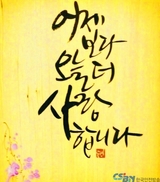 어제
보다
오늘 더
사랑
합니다
CSBN 한국안전방송